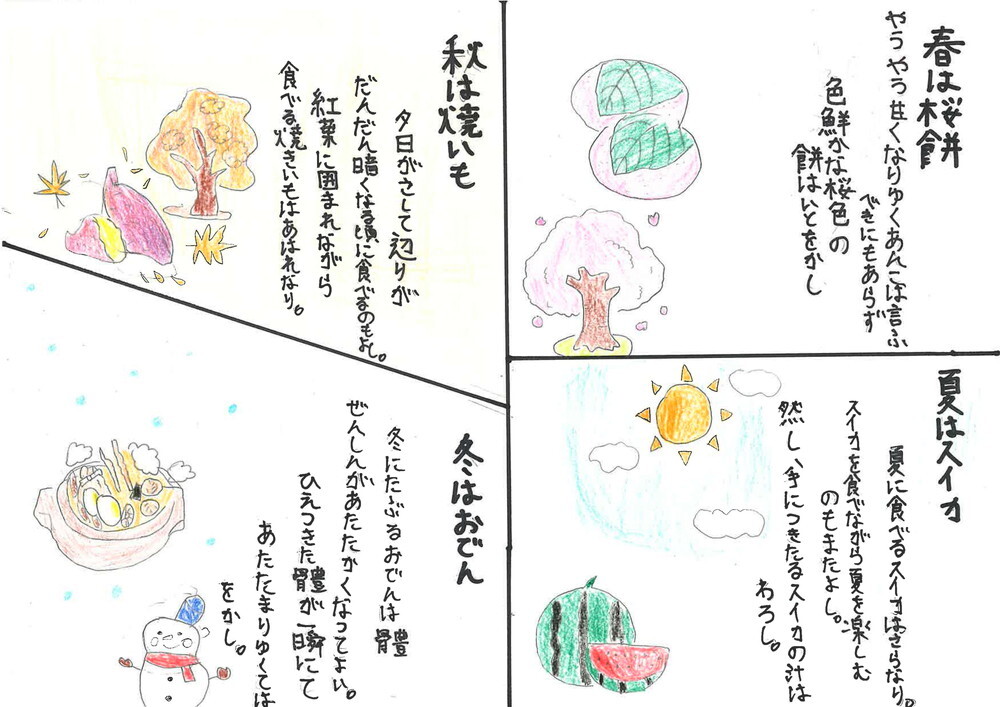 春は桜餅
やうやう甘くなりゆくあんこは言ふ
べきにもあらず
色鮮かな桜色の
餅はいとをかし
夏はスイカ
夏に食べるスイカはさらなり。
スイカを食べながら夏を楽しむ
のもまたよし。
然し、手につきたるスイカの汁は
わろし。
秋は焼いも
夕日がさして辺りが
だんだん暗くなる頃に食べるのもよし。
紅葉に囲まれながら
食べる焼きいもはあはれなり。
冬はおでん
冬にたぶるおでんは體
ぜんしんがあたたかくなってよい。
ひえつきた體が一瞬にて
あたたまりゆくては
をかし。